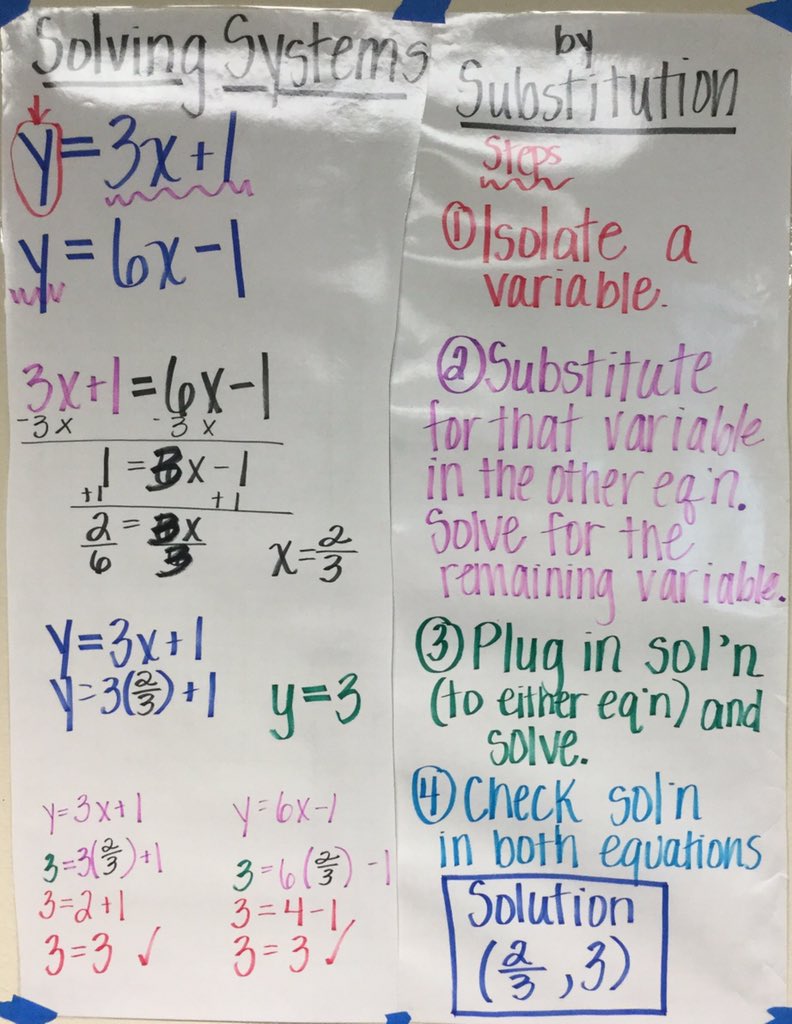 Solving Systems
y=3x+1
y=6x-1
3x+1=6x-1
-3x -3x
1=3x-1
+1 +1
2/6=3x/3
x=2/3
y=3x+1
y=3(2/3)+1
y=3
y=3x+1
3=3(2/3)+1
3=2+1
3=3 ✓
y=6x-1
3=6(2/3)-1
3=4-1
3=3 ✓
by
Substitution
Steps
① Isolate a
variable.
② Substitute
for that variable
in the other eq'n.
Solve for the
remaining variable.
③ Plug in sol'n
(to either eq'n) and
solve.
④ Check sol'n
in both equations
Solution
(2/3, 3)